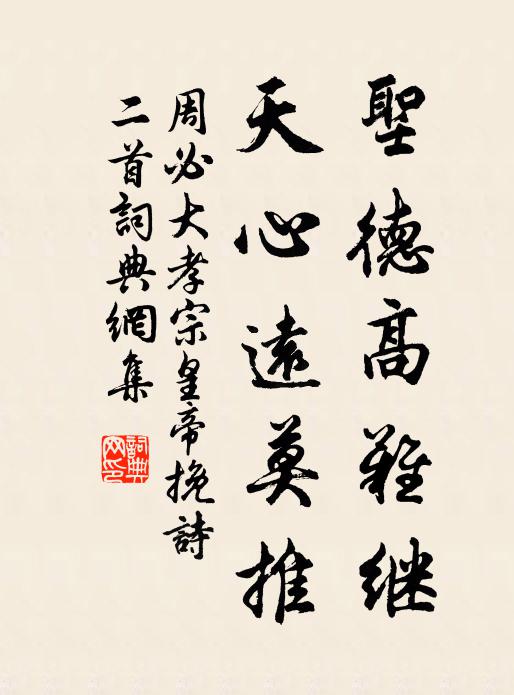 聖德高難继
天心遠莫推
周必大孝宗皇帝挽詩
二首詞典網集
詞典网印